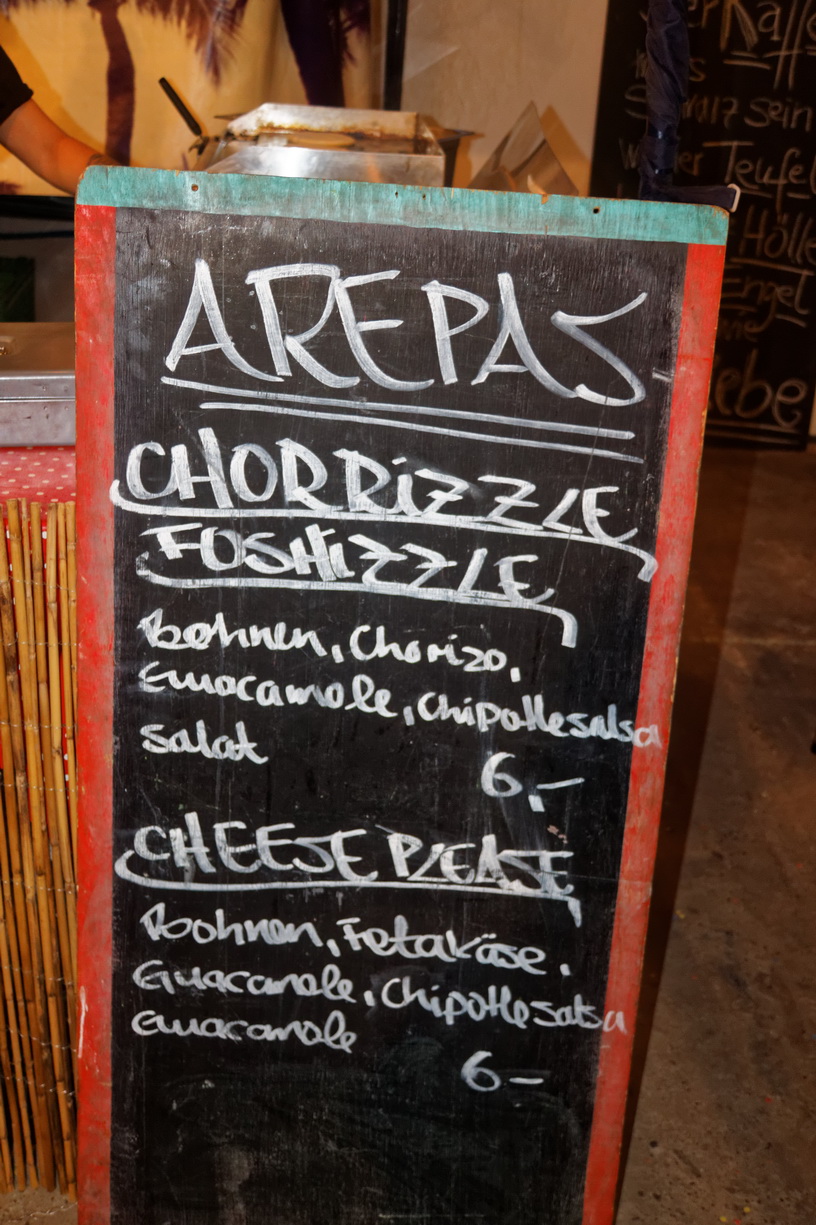 AREPAS
CHORRiZZLE
FOSHiZZLE
Bohnen, Chorizo,
Guacamole, Chipottlesalsa
salat
6,-
CHEESE PLEASE
Bohnen, Fetakäse,
Guacamole, Chipotlesalsa
Guacamole
6-
Kaffee
sein
Teufel
Hölle
Engel
iebe